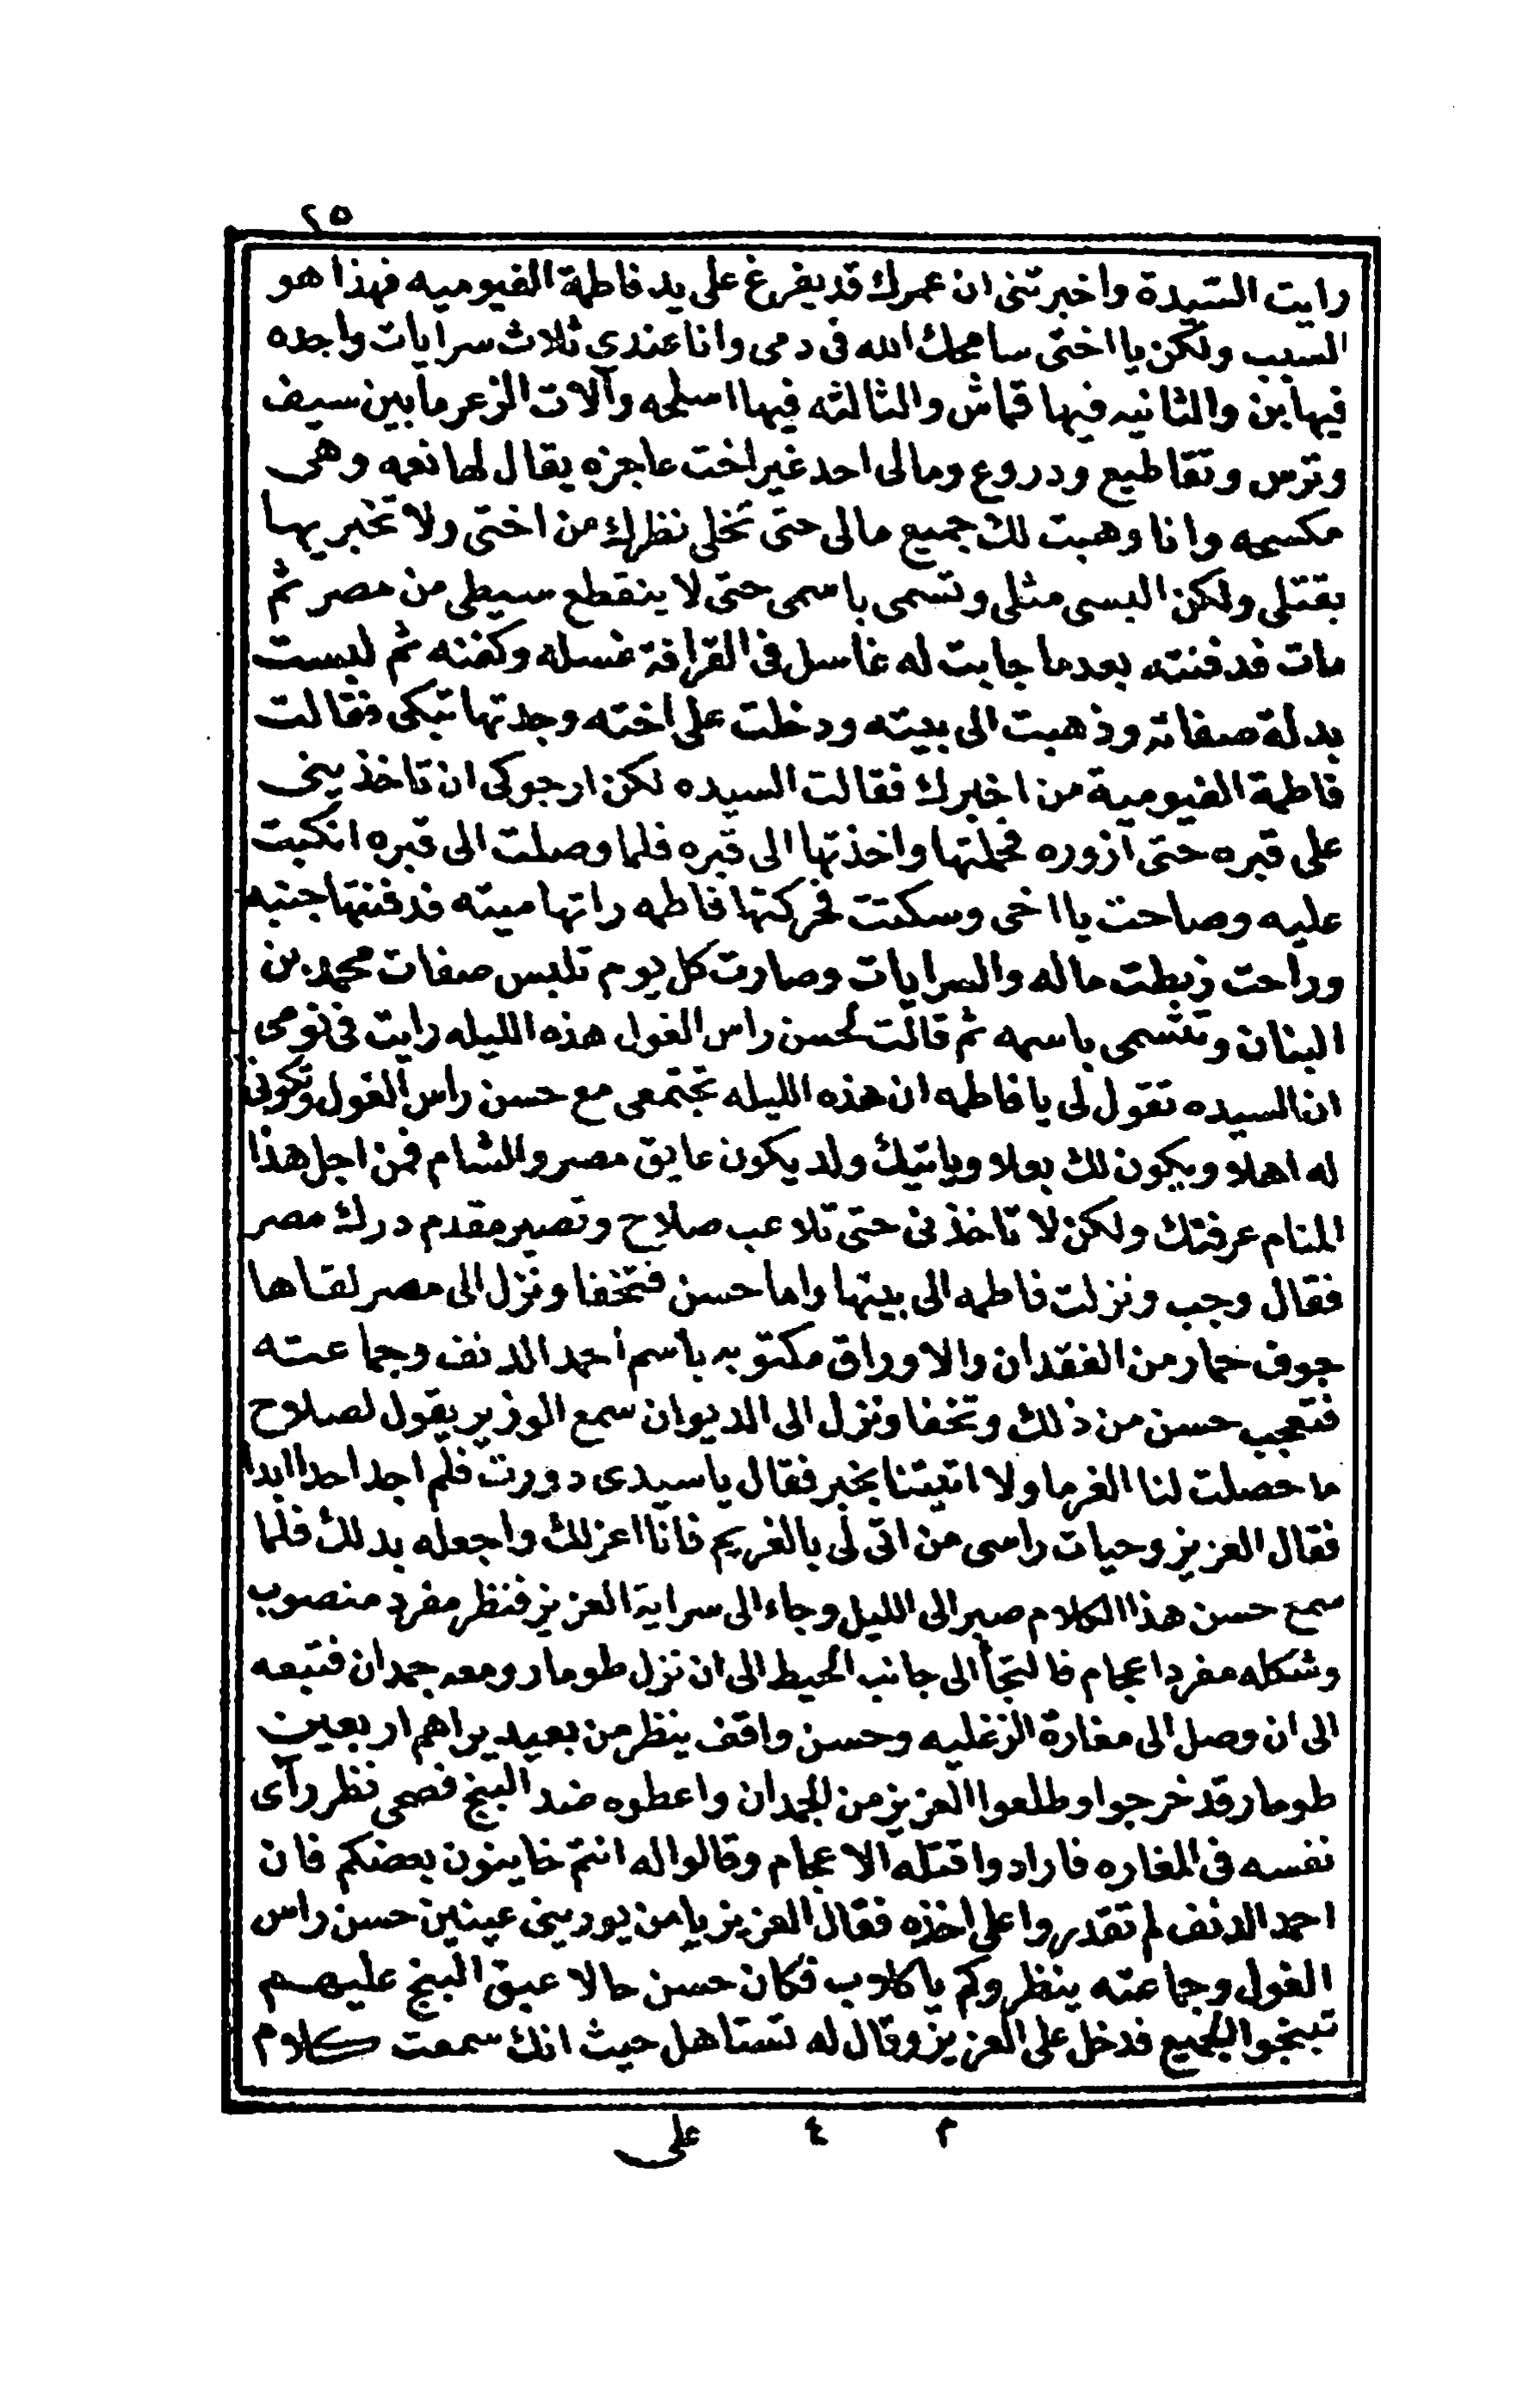 ٢٥
رايت السيدة واخبرتنى ان عمرك قد يفرغ على يد فاطمة الفيوميه فهذا هو
السبب ولكن يا اختى سامحك الله فى دمى وانا عندي ثلاث سرايات واحده
فيها بن والثانيه فيها قماش والثالثه فيها اسلحه وآلات الزعر ما بين سيف
وترس وتقاطيع ودروع ومالى احد غير اخت عاجزه يقال لها نعمه وهى
مكسحه وانا وهبت لك جميع مالى حتى تخلى نظرك من اختى ولا تخبريها
بقتلى ولكن البسى مثلى وتسمى باسمى حتى لا ينقطع سيطى من مصر ثم
مات فدفنته بعدما جابت له غاسل فى القرافة غسله وكفنه ثم لبست
بدلة صفاته وذهبت الى بيته ودخلت على اخته وجدتها تبكى فقالت
فاطمة الفيومية من اخبرك فقالت السيده لكن ارجوكى ان تاخذينى
على قبره حتى ازوره فحملتها واخذتها الى قبره فلما وصلت الى قبره انكبت
عليه وصاحت يا اخى وسكتت فحركتها فاطمه راتها ميته فدفنتها جنبه
وراحت زبطت ماله والسرايات وصارت كل يوم تلبس صفات محمد بن
البنان وتتسمى باسمه ثم قالت لحسن راس الغول هذه الليله رايت فى نومى
ان السيده تقول لى يا فاطمه ان هذه الليله تجتمعى مع حسن راس الغول وتكونى
له اهلا ويكون لك بعلا وياتيك ولد يكون عايق مصر والشام فمن اجل هذا
المنام عرفتك ولكن لا تاخذنى حتى تلاعب صلاح وتصير مقدم درك مصر
فقال وجب ونزلت فاطمه الى بيتها واما حسن فتخفا ونزل الى مصر لقاها
جوف حمار من الفقدان والاوراق مكتوبه باسم احمد الدنف وجماعته
فتعجب حسن من ذلك وتخفا ونزل الى الديوان سمع الوزير يقول لصلاح
ما حصلت لنا الغرما ولا اتيتنا بخبر فقال يا سيدى دورت فلم اجد احدا ابدا
فقال العزيز وحيات راسى من اتى لى بالغريم فانا اعزلك واجعله بدلك فلما
سمع حسن هذا الكلام صبر الى الليل وجاء الى سراية العزيز فنظر مفرد منصوب
وشكله مفرد اعجام فالتجأ الى جانب الحيط الى ان نزل طومار ومعه جمدان فتبعه
الى ان وصل الى مغارة الزغليه وحسن واقف ينظر من بعيد يراهم اربعين
طومار قد خرجوا وطلعوا العزيز من الجمدان واعطوه ضد البنج فصحى نظر رآى
نفسه فى المغاره فارادوا قتله الاعجام وقالوا له انتم خاينون بعضكم فان
احمد الدنف لم تقدروا على اخذه فقال العزيز يا من يورينى عينين حسن راس
الغول وجماعته ينظروكم يا كلاب فكان حسن حالا عبق البنج عليهم
تبنجوا الجميع فدخل على العزيز وقال له تستاهل حيث انك سمعت كلام
م ٤ على